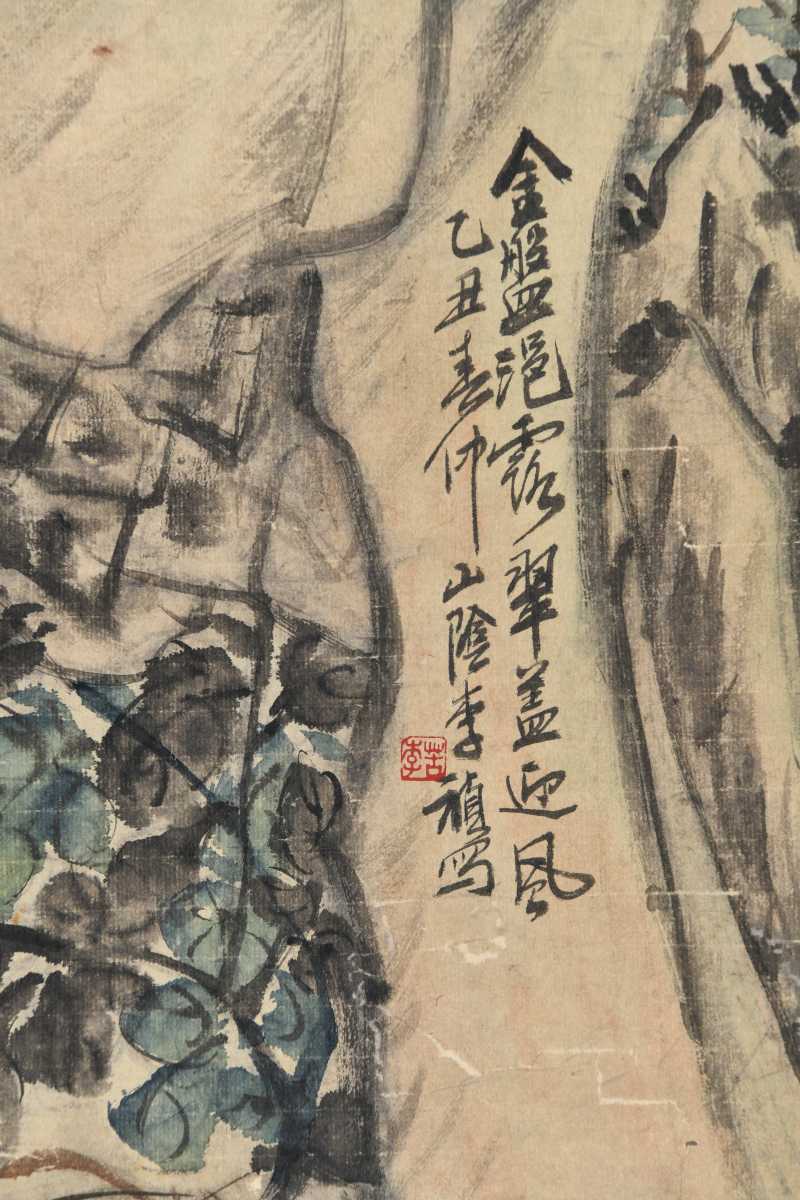 金盤浥露翠蓋迎風
乙丑春仲山陰李禎寫
苦李